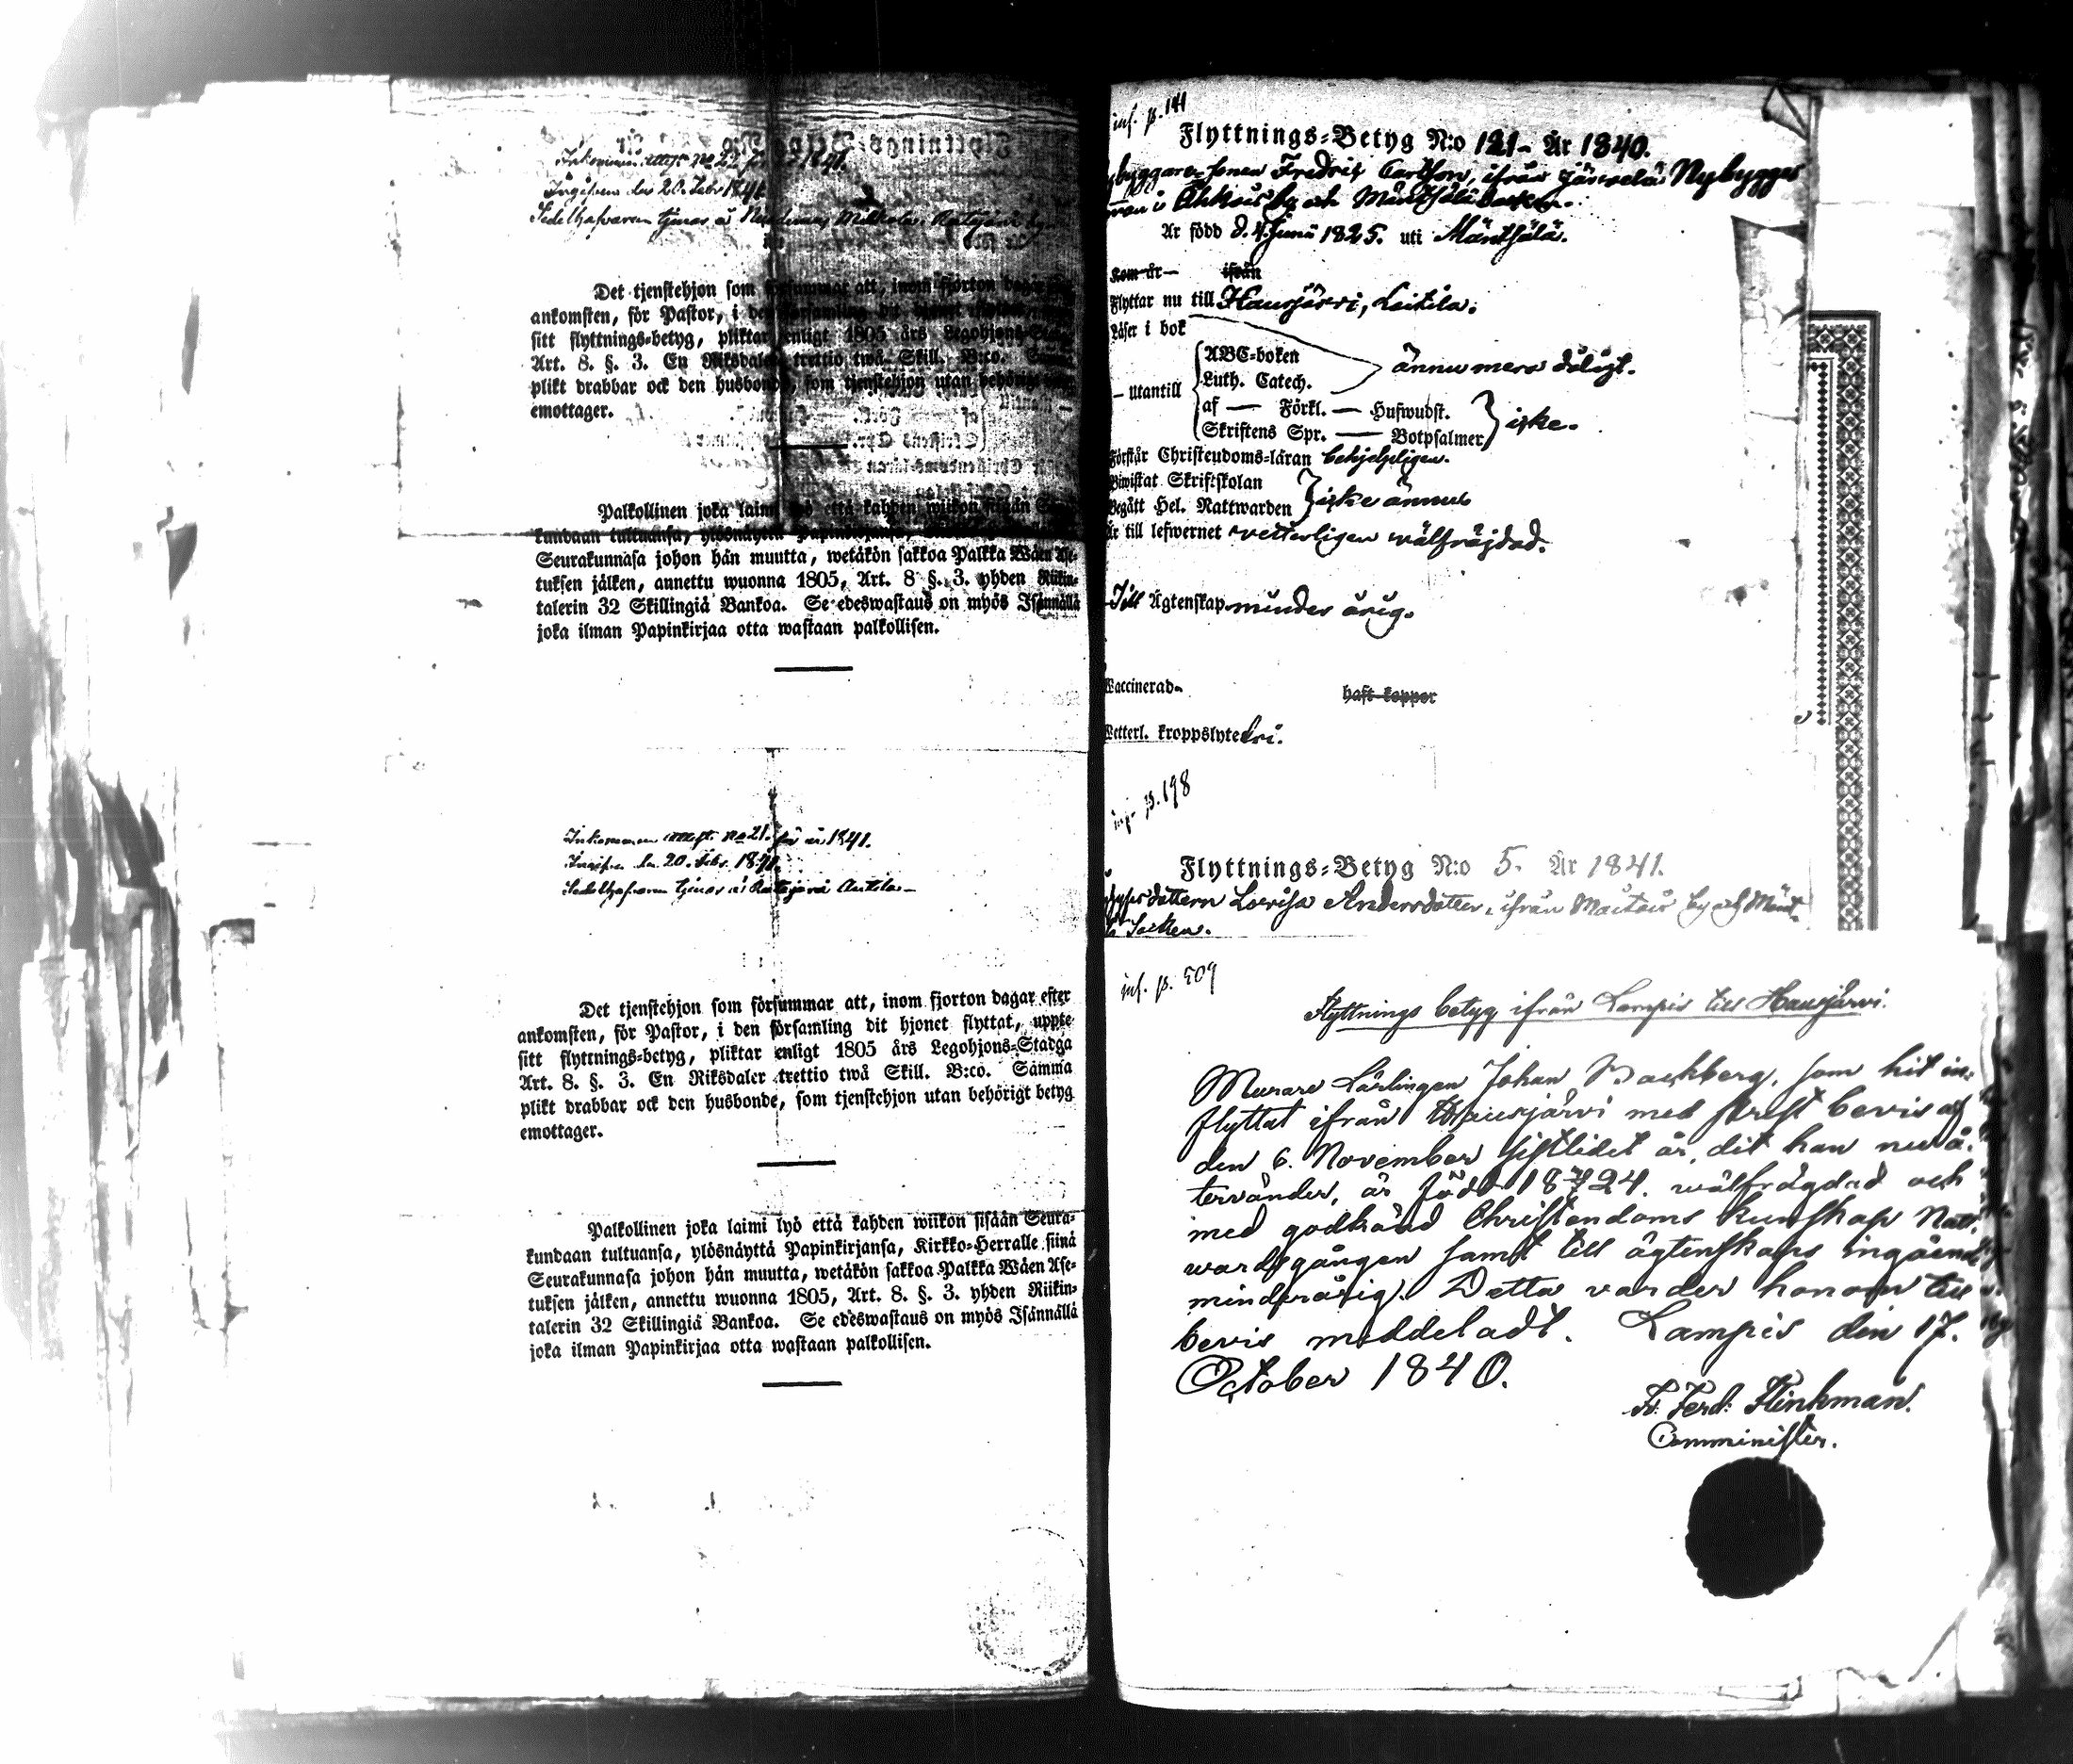 Inkommen attest No 22 för år 1841.
Ingifven den 20. Febr 1841.
Sedelhafvaren tjenar å Mikkola
Det tjenstehjon som försummar att, inom fjorton dagar
ankomsten, för Pastor, i den församling dit
sitt flyttnings-betyg, pliktar enligt 1805 års Legohjons-
Art. 8. §. 3. En Riksdaler trettio twå Skill. B:co.
plikt drabbar ock den husbonde, som tjenstehjon utan behörigt
emottager.
Palkollinen joka laimi lyö että kahden wiikon sisään
kundaan tultuansa, ylösnäyttä Papinkirjansa,
Seurakunnasa johon hän muutta, wetäkön sakkoa Palkka Wäen Ase-
tuksen jälken, annettu wuonna 1805, Art. 8 §. 3. yhden Riikin-
talerin 32 Skillingiä Bankoa. Se edeswastaus on myös Isännällä
joka ilman Papinkirjaa otta wastaan palkollisen.
Inkommen attest. No 21. för år 1841.
Ingifven den 20. Febr. 1841.
Sedelhafvaren tjenar å Ratajärvi Antila
Det tjenstehjon som försummar att, inom fjorton dagar efter
ankomsten, för Pastor, i den församling dit hjonet flyttat, uppte
sitt flyttnings-betyg, pliktar enligt 1805 års Legohjons-Stadga
Art. 8. §. 3. En Riksdaler trettio twå Skill. B:co. Samma
plikt drabbar ock den husbonde, som tjenstehjon utan behörigt betyg
emottager.
Palkollinen joka laimi lyö että kahden wiikon sisään Seura-
kundaan tultuansa, ylösnäyttä Papinkirjansa, Kirkko-Herralle siinä
Seurakunnasa johon hän muutta, wetäkön sakkoa Palkka Wäen Ase-
tuksen jälken, annettu wuonna 1805, Art. 8. §. 3. yhden Riikin-
talerin 32 Skillingiä Bankoa. Se edeswastaus on myös Isännällä
joka ilman Papinkirjaa otta wastaan palkollisen.
inf. p. 141
Flyttnings-Betyg N:o 121 - År 1840.
byggare-sonen Fredrik Carlson, ifrån Nybygge
by och Mäntsälä Socken.
Är född d. 4 Junii 1825. uti Mäntsälä.
Kom år — ifrån
Flyttar nu till Hausjärvi, Leitila.
Läser i bok
ABC-boken
Luth. Catech.
ännu mera dåligt.
— utantill
af — Förkl. — Hufwudst.
Skriftens Spr. — Botpsalmer
icke.
Förstår Christendoms-läran behjelpligen.
Biwistat Skriftskolan
Begått Hel. Nattwarden
icke ännu
Är till lefwernet vetterligen wälfrägdad.
Till Ägtenskap minder årig.
Waccinerad.
haft koppor
Wetterl. kroppslyte fri.
inf. p. 198
Flyttnings-Betyg N:o 5. År 1841.
dottern Lovisa Andersdotter, ifrån by och Mänt-
Socken.
inf. p. 509
Flyttnings betyg ifrån Lampis till Hausjärvi.
Murare Lärlingen Johan Backberg, som hit in-
flyttat ifrån Hausjärvi med prest bevis af
den 6. November sistlidet år, dit han nu å-
tervänder, är född 1824. wälfrägdad och
med godkänd Christendoms kunskap Natt-
wardsgången samt till ägtenskaps ingående
minderårig. Detta varder honom till
bevis meddeladt. Lampis den 17.
October 1840.
Fr. Ferd. Flinkman.
Comminister.